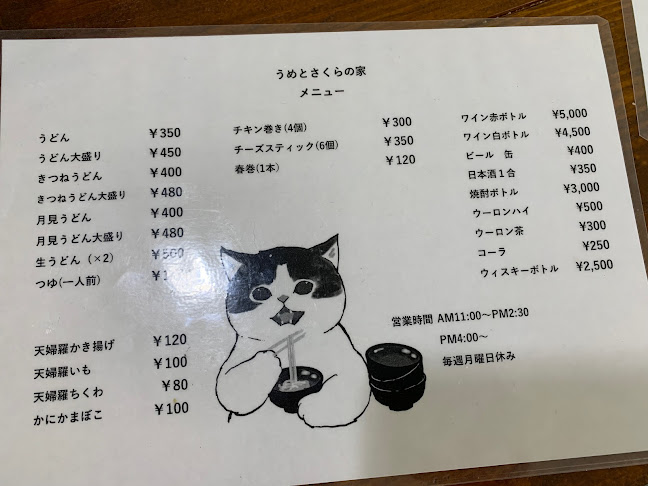 うめとさくらの家
メニュー
うどん ¥350
うどん大盛り ¥450
きつねうどん ¥400
きつねうどん大盛り ¥480
月見うどん ¥400
月見うどん大盛り ¥480
生うどん（×2）
つゆ(一人前)
天婦羅かき揚げ ¥120
天婦羅いも ¥100
天婦羅ちくわ ¥80
かにかまぼこ ¥100
チキン巻き(4個) ¥300
チーズスティック(6個) ¥350
春巻(1本) ¥120
ワイン赤ボトル ¥5,000
ワイン白ボトル ¥4,500
ビール 缶 ¥400
日本酒１合 ¥350
焼酎ボトル ¥3,000
ウーロンハイ ¥500
ウーロン茶 ¥300
コーラ ¥250
ウィスキーボトル ¥2,500
営業時間 AM11:00～PM2:30
PM4:00～
毎週月曜日休み